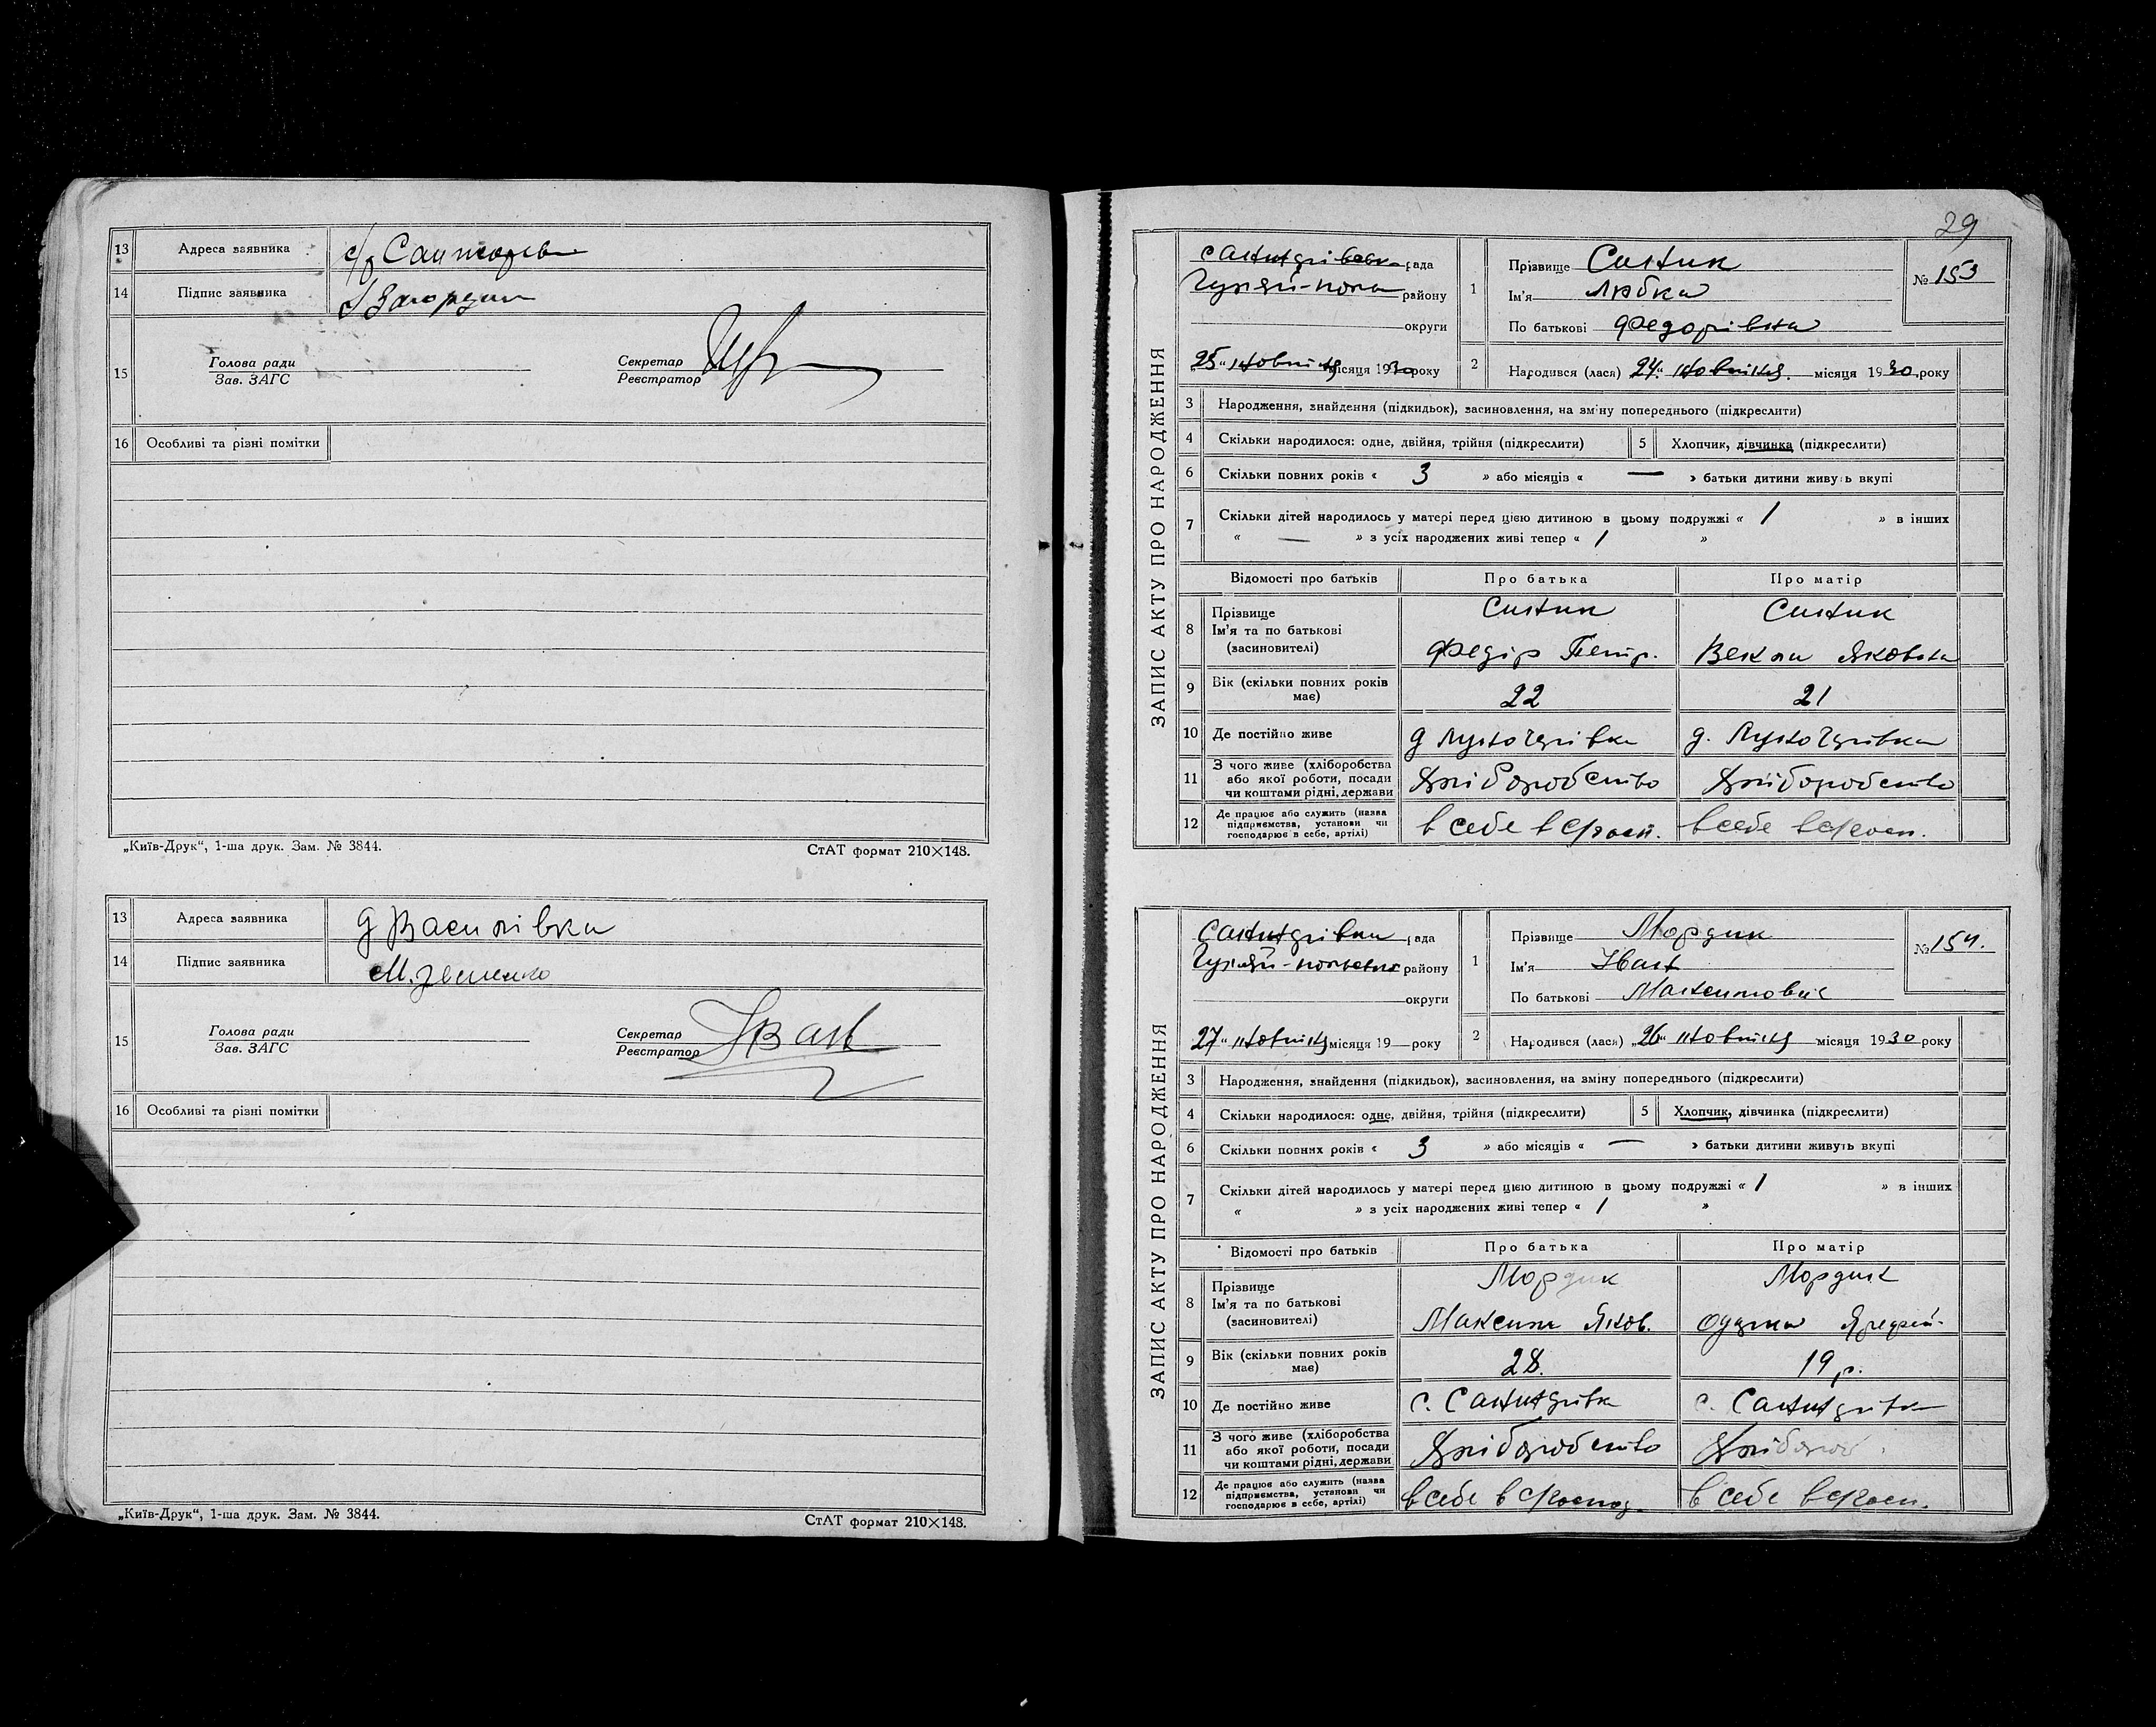 13 Адреса заявника
14 Підпис заявника
15 Голова ради
Зав. ЗАГС
Секретар
Реєстратор
16 Особливі та різні помітки
„Київ-Друк“, 1-ша друк. Зам. № 3844.
СтАТ формат 210×148.
13 Адреса заявника д Василівка
14 Підпис заявника
15 Голова ради
Зав. ЗАГС
Секретар
Реєстратор
16 Особливі та різні помітки
„Київ-Друк“, 1-ша друк. Зам. № 3844.
СтАТ формат 210×148.
29
ЗАПИС АКТУ ПРО НАРОДЖЕННЯ
рада
району
округи
„25“ жовтня місяця 1930 року
1 Прізвище
Ім'я Любка
По батькові Федорівна
№ 153
2 Народився (лася) 24“ жовтня місяця 1930 року
3 Народження, знайдення (підкидьок), засиновлення, на зміну попереднього (підкреслити)
4 Скільки народилося: одне, двійня, трійня (підкреслити)
5 Хлопчик, дівчинка (підкреслити)
6 Скільки повних років « 3 » або місяців « — » батьки дитини живуть вкупі
7 Скільки дітей народилось у матері перед цією дитиною в цьому подружжі « 1 » в інших
« — » з усіх народжених живі тепер « 1 »
Відомості про батьків Про батька Про матір
8 Прізвище
Ім'я та по батькові Федір Петр. Векла Яковна
(засиновителі)
9 Вік (скільки повних років має) 22 21
10 Де постійно живе
11 З чого живе (хліборобства
або якої роботи, посади Хліборобство Хліборобство
чи коштами рідні, держави
12 Де працює або служить (назва
підприємства, установи чи в себе в госп. в себе в госп.
господарює в себе, артілі)
ЗАПИС АКТУ ПРО НАРОДЖЕННЯ
рада
району
округи
27“ жовтня місяця 19— року
1 Прізвище Мордик
Ім'я Іван
По батькові Максимович
№ 154.
2 Народився (лася) „26“ жовтня місяця 1930 року
3 Народження, знайдення (підкидьок), засиновлення, на зміну попереднього (підкреслити)
4 Скільки народилося: одне, двійня, трійня (підкреслити)
5 Хлопчик, дівчинка (підкреслити)
6 Скільки повних років « 3 » або місяців « — » батьки дитини живуть вкупі
7 Скільки дітей народилось у матері перед цією дитиною в цьому подружжі « 1 » в інших
« » з усіх народжених живі тепер « 1 »
Відомості про батьків Про батька Про матір
8 Прізвище Мордик Мордик
Ім'я та по батькові Максим Яков.
(засиновителі)
9 Вік (скільки повних років має) 28. 19 р.
10 Де постійно живе
11 З чого живе (хліборобства
або якої роботи, посади Хліборобство
чи коштами рідні, держави
12 Де працює або служить (назва
підприємства, установи чи в себе в господ. в себе в госп.
господарює в себе, артілі)